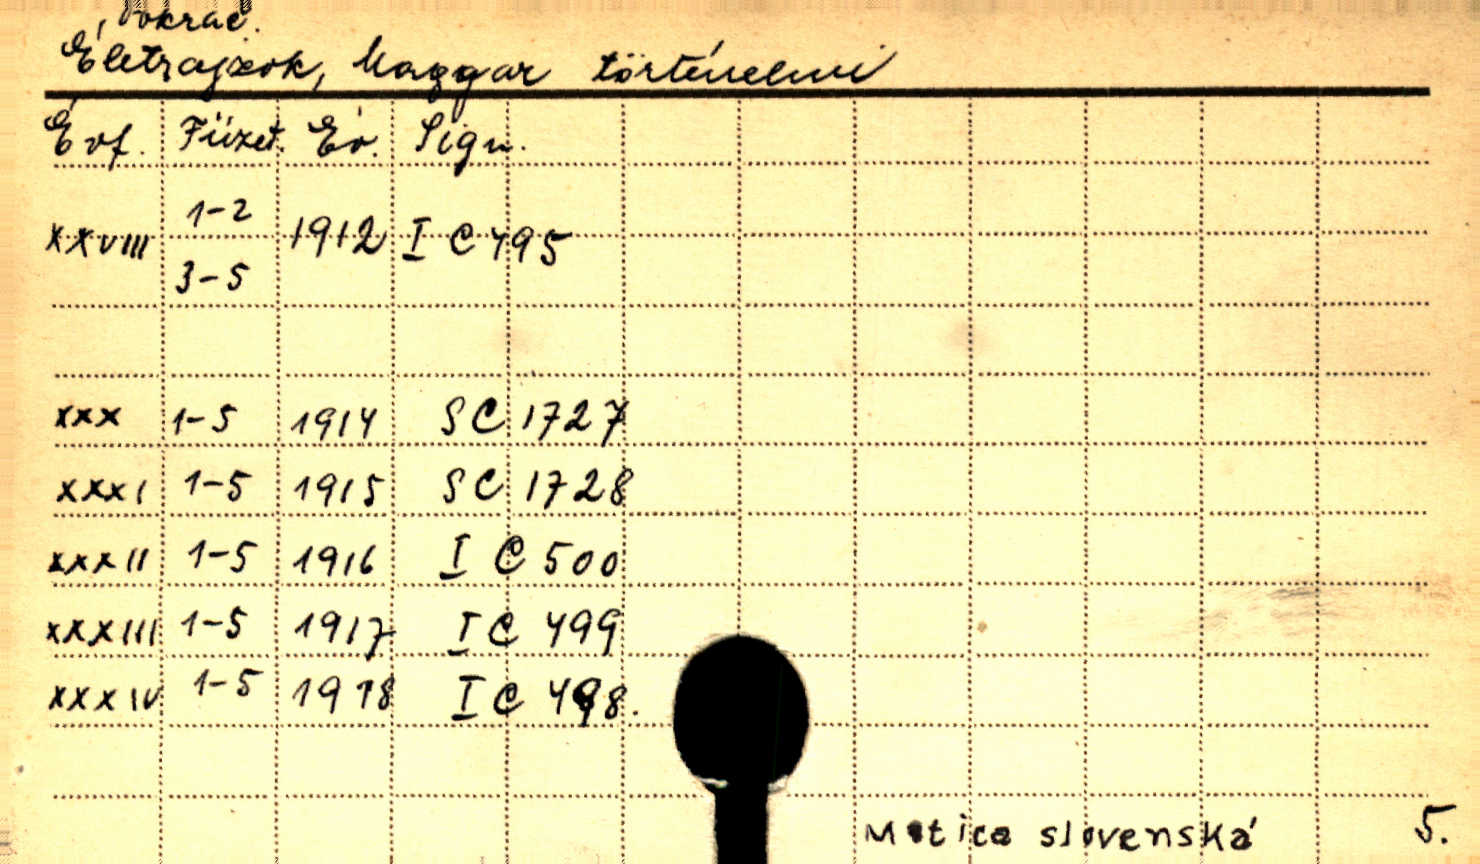 Pokrač.
Életrajzok, Magyar történelmi
Évf. Füzet. Év. Sign.
XXVIII 1-2 1912 I C 495
3-5
XXX 1-5 1914 SC 1727
XXXI 1-5 1915 SC 1728
XXXII 1-5 1916 I C 500
XXXIII 1-5 1917 I C 499
XXXIV 1-5 1918 I C 498.
Matica slovenská 5.